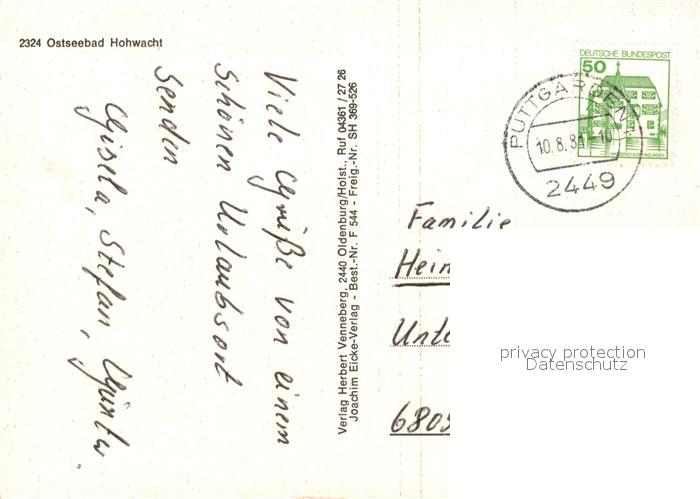 2324 Ostseebad Hohwacht
Viele Grüße von einem
schönen Urlaubsort
senden
Gisela, Stefan, Günter.
Verlag Herbert Venneberg, 2440 Oldenburg/Holst., Ruf 04361 / 27 26
Joachim Eicke-Verlag - Best.-Nr. F 544 - Freig.-Nr. SH 369-526
DEUTSCHE BUNDESPOST
50
PUTTGARDEN
10.8.81-10
2449
Familie
Hein
Unte
6805
privacy protection
Datenschutz